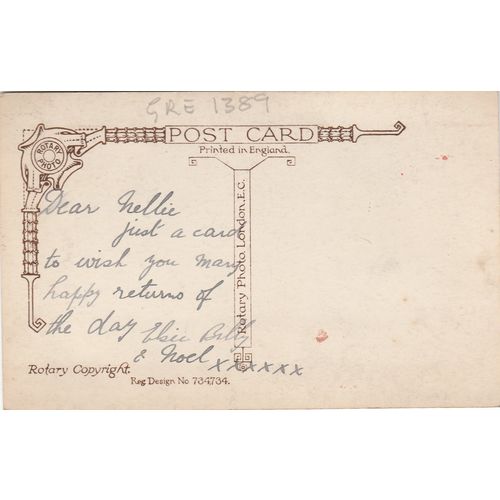 GRE 1389
POST CARD
Printed in England.
ROTARY PHOTO
Rotary Photo, London, E.C.
Dear Nellie
just a card
to wish you many
happy returns of
the day Elsie Billy
& Noel xxxxxx
Rotary Copyright.
Reg Design No 734,734.